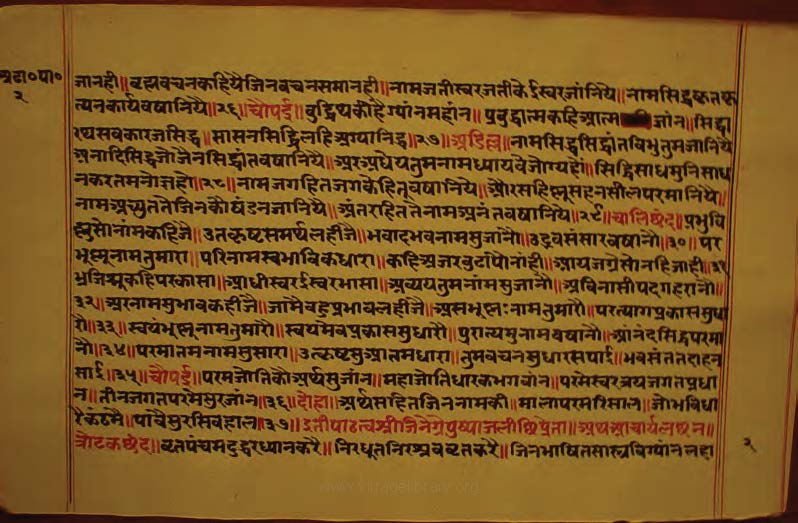 अढा॰पा॰
२
जानही॥ब्रह्मवचनकहियैजिनवचनसमानही॥नामजतीस्वरजतीकेईस्वरजांनियै॥नामसिद्धकृतकृ
त्यनकार्यवषानियै॥२६॥चौपई॥बुद्धिथकीहैग्यांनमहांन॥प्रबुद्धात्मकहिआत्मज्ञांन॥सिद्धा
रथसवकारजसिद्ध॥सासनसिद्धिलहिअग्यानिद्ध॥२७॥अडिल्ल॥नामसिद्धसिद्धांतविभुतुमजानियै
अनादिसिद्धजोजैनसिद्धांतवषानियै॥अरुप्रधेयतुमनामध्यायवेजोग्यहौ॥सिद्धिसाधमुनिसाध
नकरतमनोज्ञहौ॥२८॥नामजगहितजगकेहितूवषानियै॥औरसहिष्णुसहनसीलपरमानियै॥
नामअच्युततेजिनकौषंडनजानियै॥अंतरहिततेनामअनंतवषानियै॥२९॥चालिछंद॥प्रभुवि
ष्णुसोनांमकहिजै॥उतकृष्टसमर्थलहीजै॥भवोद्भवनामसुजांनौ॥उद्भवसंसारवषानौ॥३०॥पर
भूष्णुनामतुमारा॥परिनामस्वभाविकधारा॥कहिअजरबुढापोनांही॥आयजगप्रसोनहिजाही॥३१
भ्रजिष्णुकहिपरकासा॥आधीस्वरईस्वरभासा॥अव्ययतुमनांमसुजानौ॥अविनासीपदगहरानौ॥
३२॥अरनामसुभावकहीजै॥जामैबहुप्रभावलहीजै॥असभूष्णुःनामतुमारौ॥परत्यागप्रकाससुधा
रौ॥३३॥स्वयंभूष्णुनामतुमारौ॥स्वयमेवप्रकाससुधारौ॥पुरात्यमुनामवषानौ॥आंनंदसिद्धपरमा
नौ॥३४॥परमातमनामसुसारा॥उत्कृष्टसुआतमधारा॥तुमवचनसुधारसपाई॥भवसंततदाहन
साई॥३५॥चौपई॥परमजोतिकौअर्थसुजांन॥महाजोतिधारकभगवांन॥परमेस्वरत्रयजगतप्रधा
न॥तीनजगतपरमेसुरजांन॥३६॥दोहा॥अर्थसहितजिननामकी॥मालापरमरिसाल॥जोभविधा
रैकंठमै॥पावैसुरसिवहाल॥३७॥इतीपाठत्वश्रीजिनेग्रेपुष्पांजलीक्षिप्रेता॥अथआचार्यलछन॥
त्रोटकछंद॥व्रतपंचमदुद्धरध्यानकरै॥निरधूतनिरश्रवव्रतकरै॥जिनभाषितसास्त्रविग्यांनलहा
२
www.vitragelibrary.org